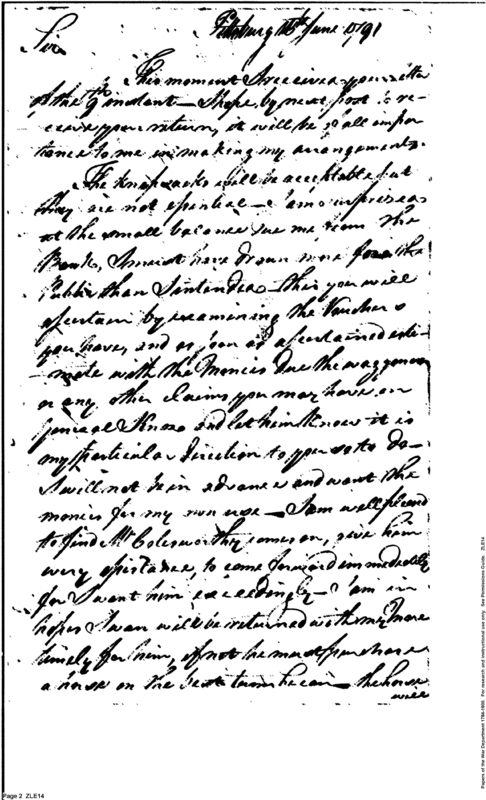 Pittsburg 16th June 1791
Sir
This moment I received your letter
of the 9th instant — I hope, by next post to re-
ceive your return, it will be of all impor
tance to me in making my arrangements.
The knapsacks will be acceptable but
they are not essential — I am surprised
at the small balance due me from the
Bank, I must have drawn more for the
Public than I intended — this you will
ascertain by examining the Vouchers
you have, and as soon as ascertained
with the Monies due the waggoners
or any other claims you may have on
General Knox and let him know it is
my particular direction to you so to do —
I will not be in advance and want the
monies for my own use — I am well pleased
to find Mr Colesworthy comes on, give him
every assistance, to come forward immediately
for I want him exceedingly — I am in
hopes will be returned with my mare
timely for him, if not he must purchase
a horse on the best terms he can — the horse
will
Page 2 ZLE14
Papers of the War Department 1784-1800. For research and instructional use only. See Permissions Guide. ZLE14